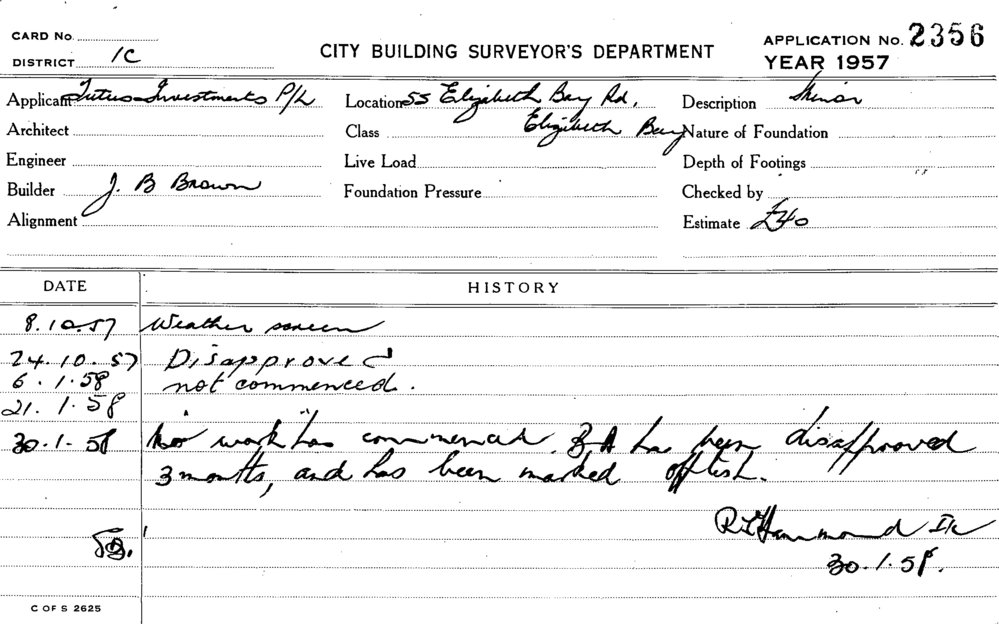 CARD No.
DISTRICT 1C
CITY BUILDING SURVEYOR'S DEPARTMENT
APPLICATION No. 2356
YEAR 1957
Applicant Investments P/L
Location 55 Elizabeth Bay Rd,
Elizabeth Bay
Description Minor
Architect
Class
Nature of Foundation
Engineer
Live Load
Depth of Footings
Builder J. B Brown
Foundation Pressure
Checked by
Alignment
Estimate £40
DATE
HISTORY
8.10.57 Weather screen
24.10.57 Disapproved
6.1.58 not commenced.
21.1.58
30.1.58 No work has commenced. B A has been disapproved
3 months, and has been marked off list.
Hammond
30.1.58.
C OF S 2625